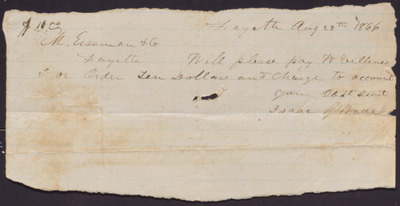 $ 10.00 Fayette Aug 29th 1866
M. Eisenman & Co
Fayette Will please pay W
I or Order Ten Dollars and Charge to account
your Obdt Servt
Isaac